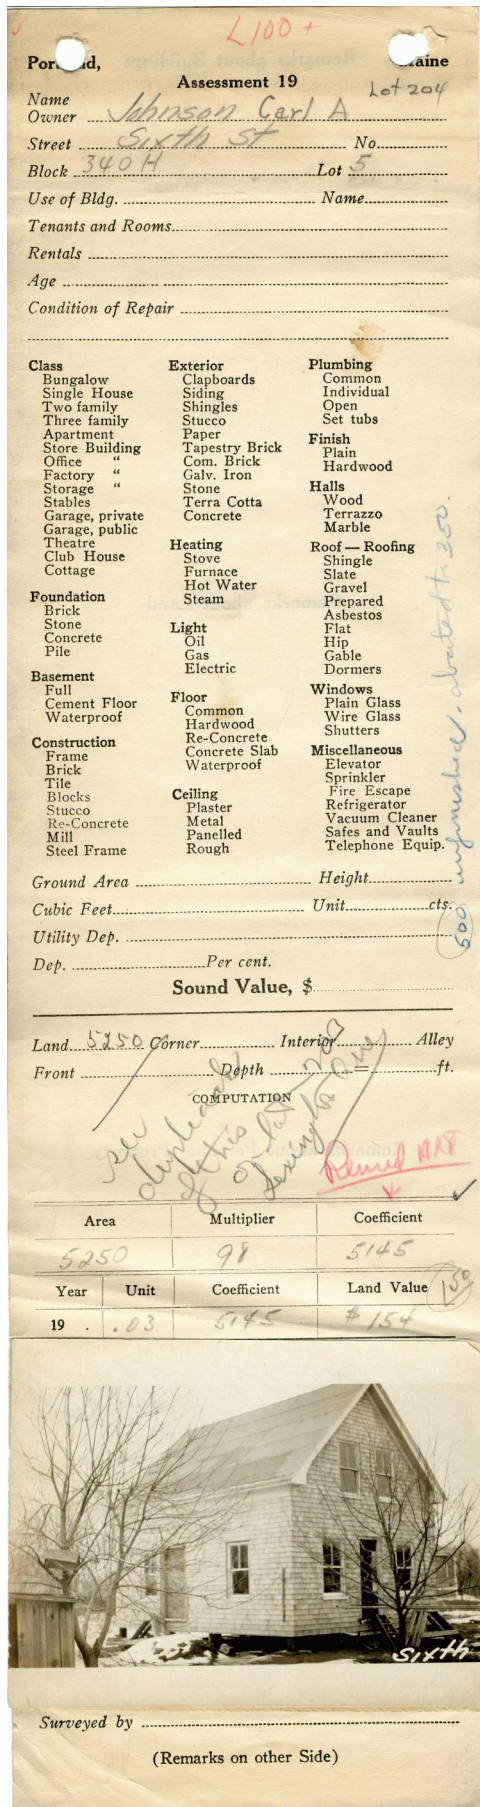 L100+
Portland, Maine
Assessment 19
Lot 204
Name
Owner Johnson Carl A
Street Sixth St No.
Block 340H Lot 5
Use of Bldg. Name
Tenants and Rooms
Rentals
Age
Condition of Repair
Class
Bungalow
Single House
Two family
Three family
Apartment
Store Building
Office "
Factory "
Storage "
Stables
Garage, private
Garage, public
Theatre
Club House
Cottage
Foundation
Brick
Stone
Concrete
Pile
Basement
Full
Cement Floor
Waterproof
Construction
Frame
Brick
Tile
Blocks
Stucco
Re-Concrete
Mill
Steel Frame
Exterior
Clapboards
Siding
Shingles
Stucco
Paper
Tapestry Brick
Com. Brick
Galv. Iron
Stone
Terra Cotta
Concrete
Heating
Stove
Furnace
Hot Water
Steam
Light
Oil
Gas
Electric
Floor
Common
Hardwood
Re-Concrete
Concrete Slab
Waterproof
Ceiling
Plaster
Metal
Panelled
Rough
Plumbing
Common
Individual
Open
Set tubs
Finish
Plain
Hardwood
Halls
Wood
Terrazzo
Marble
Roof — Roofing
Shingle
Slate
Gravel
Prepared
Asbestos
Flat
Hip
Gable
Dormers
Windows
Plain Glass
Wire Glass
Shutters
Miscellaneous
Elevator
Sprinkler
Fire Escape
Refrigerator
Vacuum Cleaner
Safes and Vaults
Telephone Equip.
500 unfinished - abated to 350.
Ground Area Height
Cubic Feet Unit cts.
Utility Dep.
Dep. Per cent.
Sound Value, $
Land 5250 Corner Interior Alley
Front Depth = ft.
COMPUTATION
see
duplicate
of this
on lot 203
Lexington Ave
Area Multiplier Coefficient
5250 98 5145
Year Unit Coefficient Land Value 150
19 . .03 5145 $154
Sixth
Surveyed by
(Remarks on other Side)